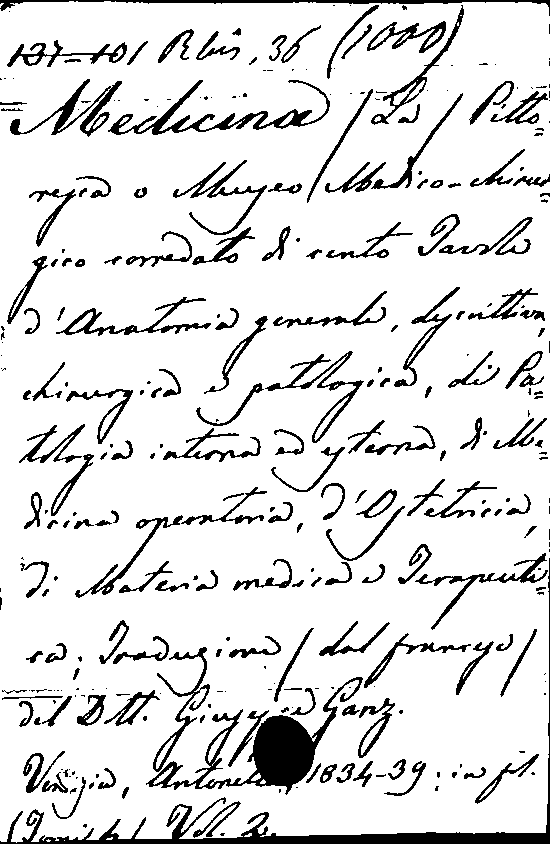 137-101 Rbis, 36 (1000)
Medicina /La/ Pitto=
resca o Museo Medico-chirur=
gico corredato di cento Tavole
d'Anatomia generale, descrittiva,
chirurgica e patologica, di Pa=
tologia interna ed esterna, di Me=
dicina operatoria, d'Ostetricia,
di Materia medica e Terapeuti=
ca; Traduzione /dal francese/
del Dtt. Giuseppe Ganz.
Venezia, Antonelli, 1834-39; in fol.
Vol. 2.